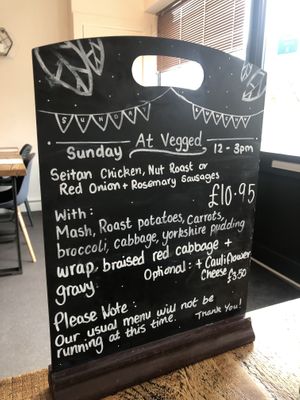 SUNDAY
Sunday At Vegged 12 - 3pm
Seitan Chicken, Nut Roast or
Red Onion + Rosemary Sausages
£10.95
With :
Mash, Roast potatoes, Carrots,
broccoli, cabbage, yorkshire pudding
wrap braised red cabbage +
gravy.
Optional : + Cauliflower
Cheese £3.50
Please Note :
Our usual menu will not be
running at this time.
Thank You!